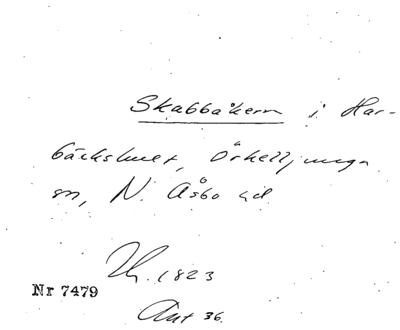 Skabbåkern i Har-
bäckshult, Örkelljunga
sn, N. Åsbo hd
1823
Nr 7479
Ant 36.